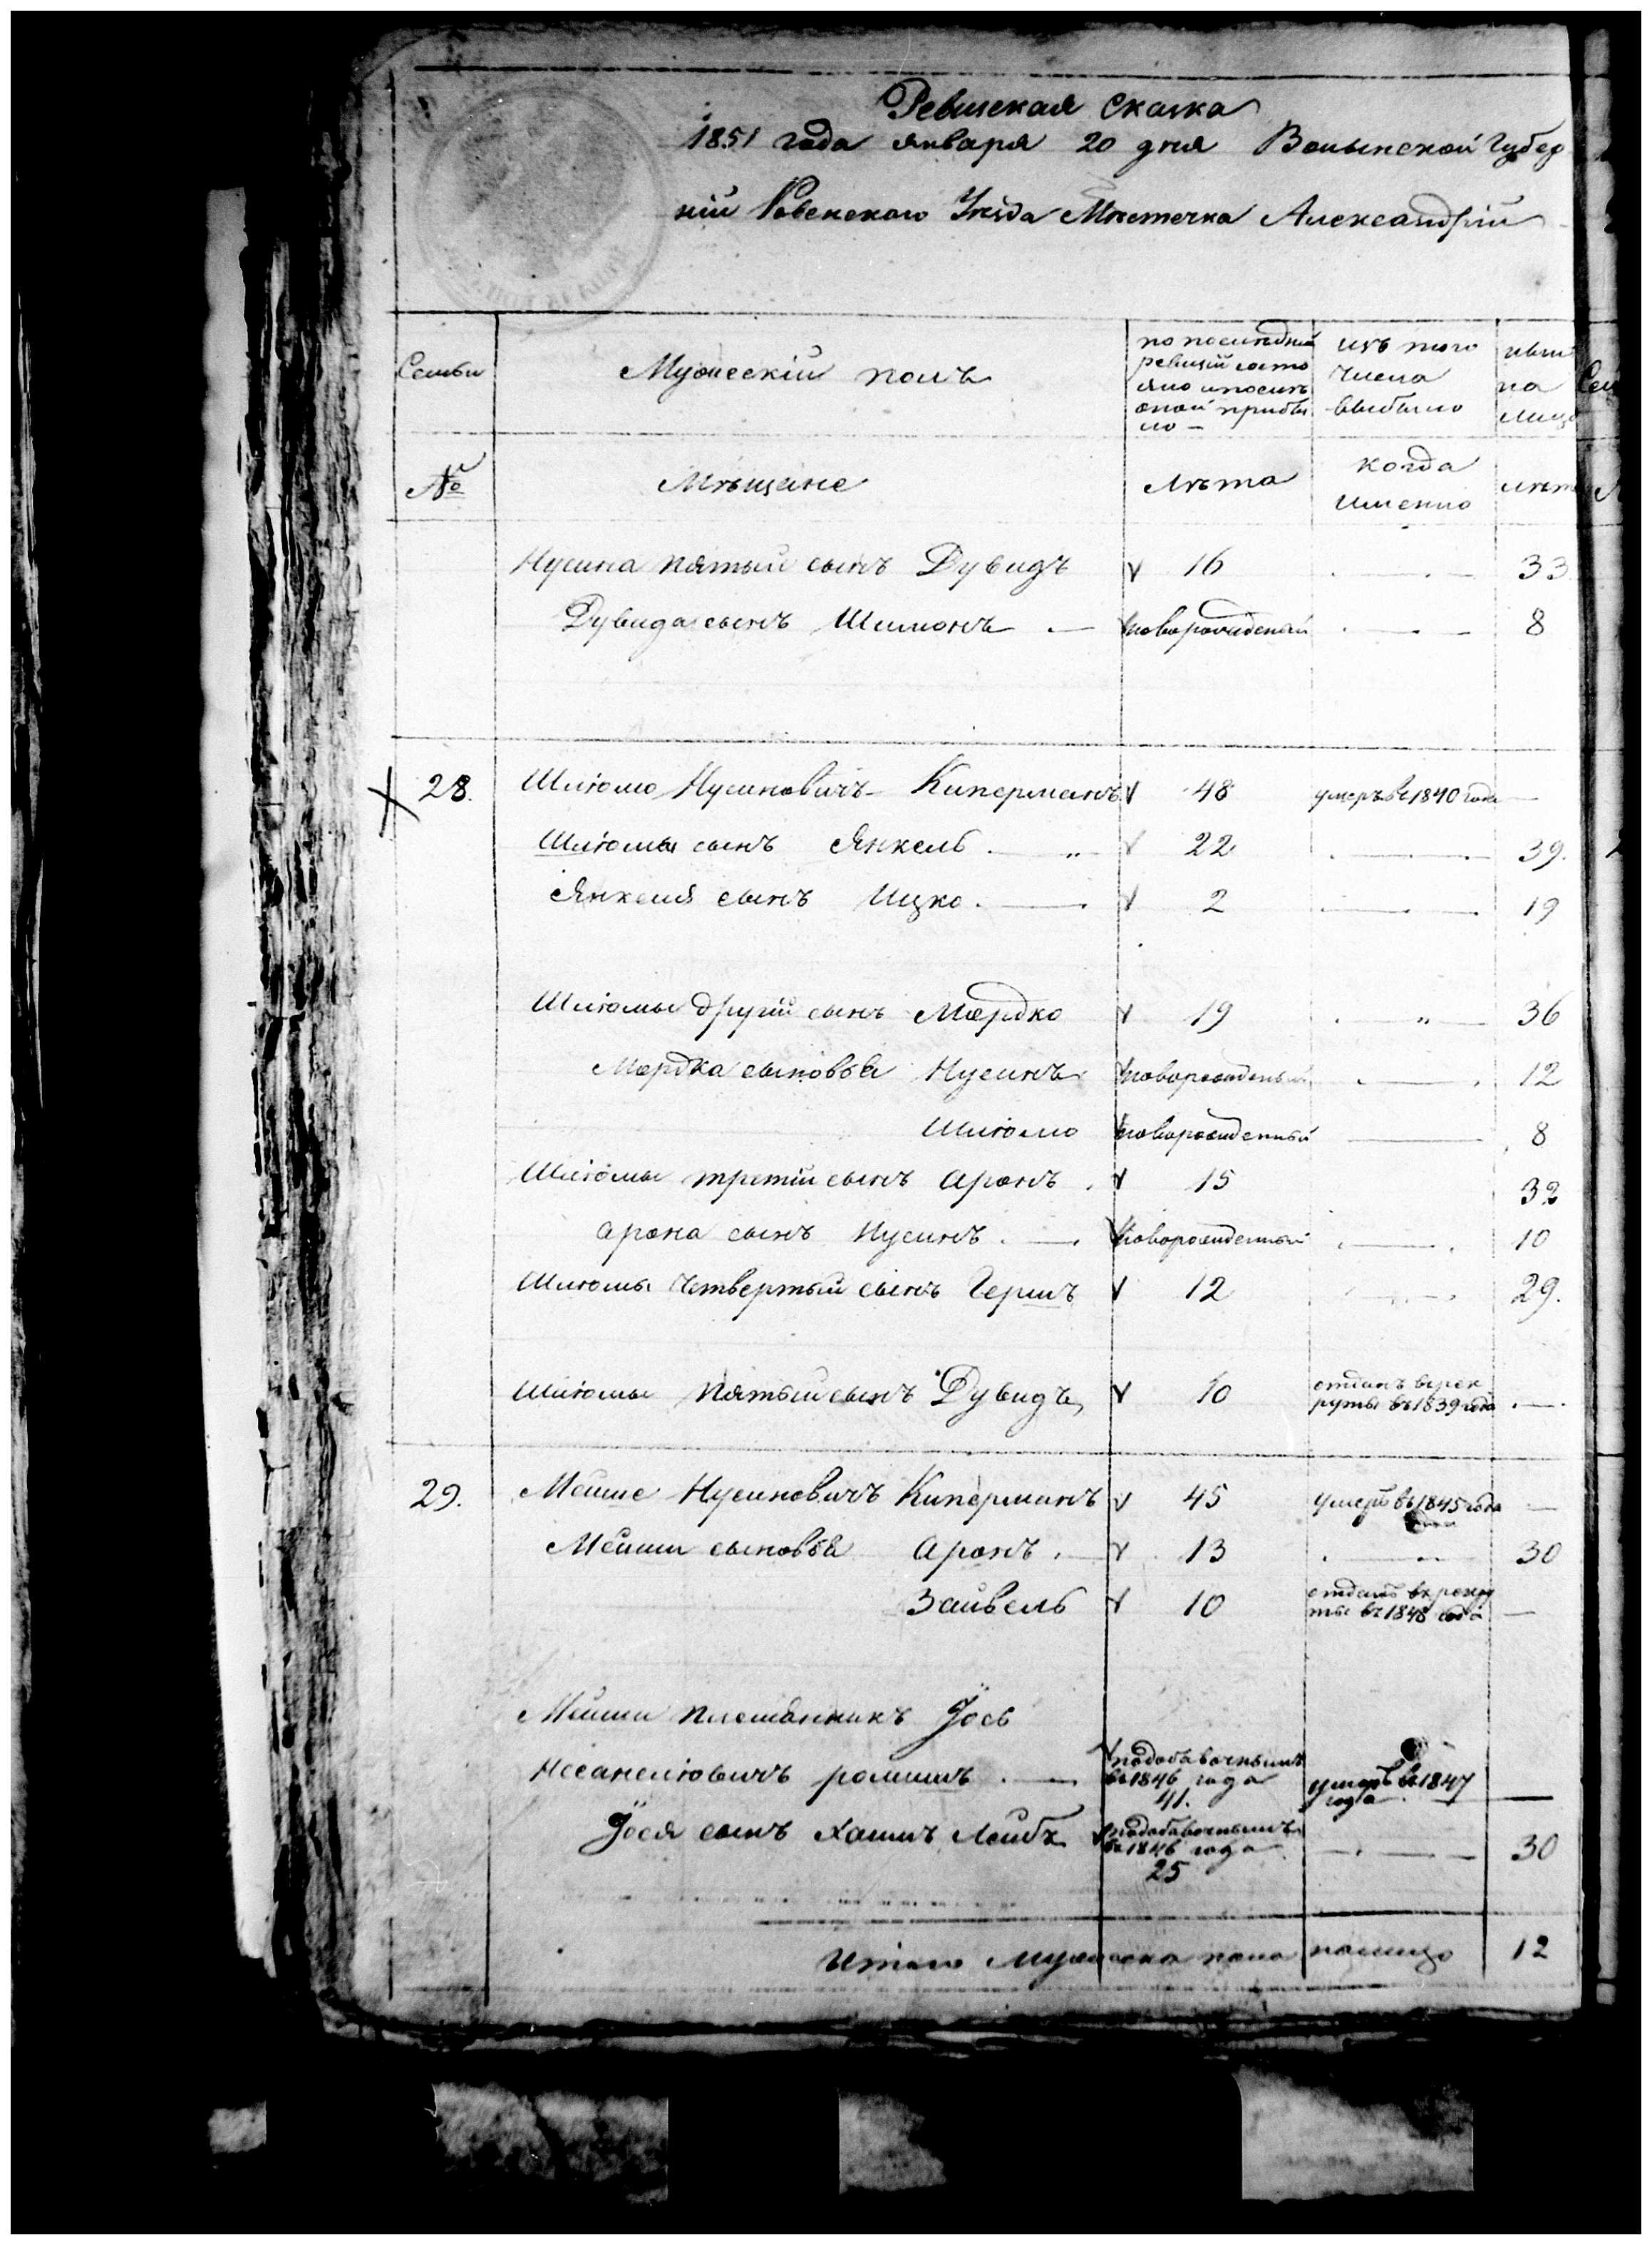 Ревизская Сказка
1851 года января 20 дня Волынской Губер
нiи Ровенского Уезда Мѣстечка Александрiи
Семьи
Мужескiй полъ
по последней
ревизiи состо
яло и послѣ
оной прибы
ло —
изъ того
числа
выбыло
ныне
на
лицо
№
Мѣщане
лѣта
когда
именно
лѣта
Нусина пятый сынъ Дувидъ 16 33
Дувида сынъ Шимонъ — новорожденый 8
28. Шлiомо Нусиновичъ Киперманъ 48 умеръ въ 1840 года —
Шлiомы сынъ Янкель 22 39.
Янкеля сынъ Ицко 2 19
Шлiомы другiй сынъ Мордко 19 36
Мордка сыновья Нусинъ новорожденый 12
Шлiомо новорожденный 8
Шлiомы третiй сынъ Аронъ 15 32
Арона сынъ Нусинъ новорожденной 10
Шлiомы Четвертый сынъ Гершъ 12 29.
Шлiомы пятый сынъ Дувидъ 10 отданъ врек
руты въ 1839 года
29. Мейше Нусиновичъ Киперманъ 45 умеръ въ 1845 года —
Мейши сыновья Аронъ 13 30
Зайвель 10 отданъ врекру
ты въ 1848 года —
Мейши племянникъ Iось
Несанелiовичъ подобавочнымъ
въ 1846 года
41. умеръ въ 1847
года —
Iося сынъ Хаимъ Лейбъ подобавочнымъ
въ 1846 года
25 30
Итого Мужеска пола налицо 12